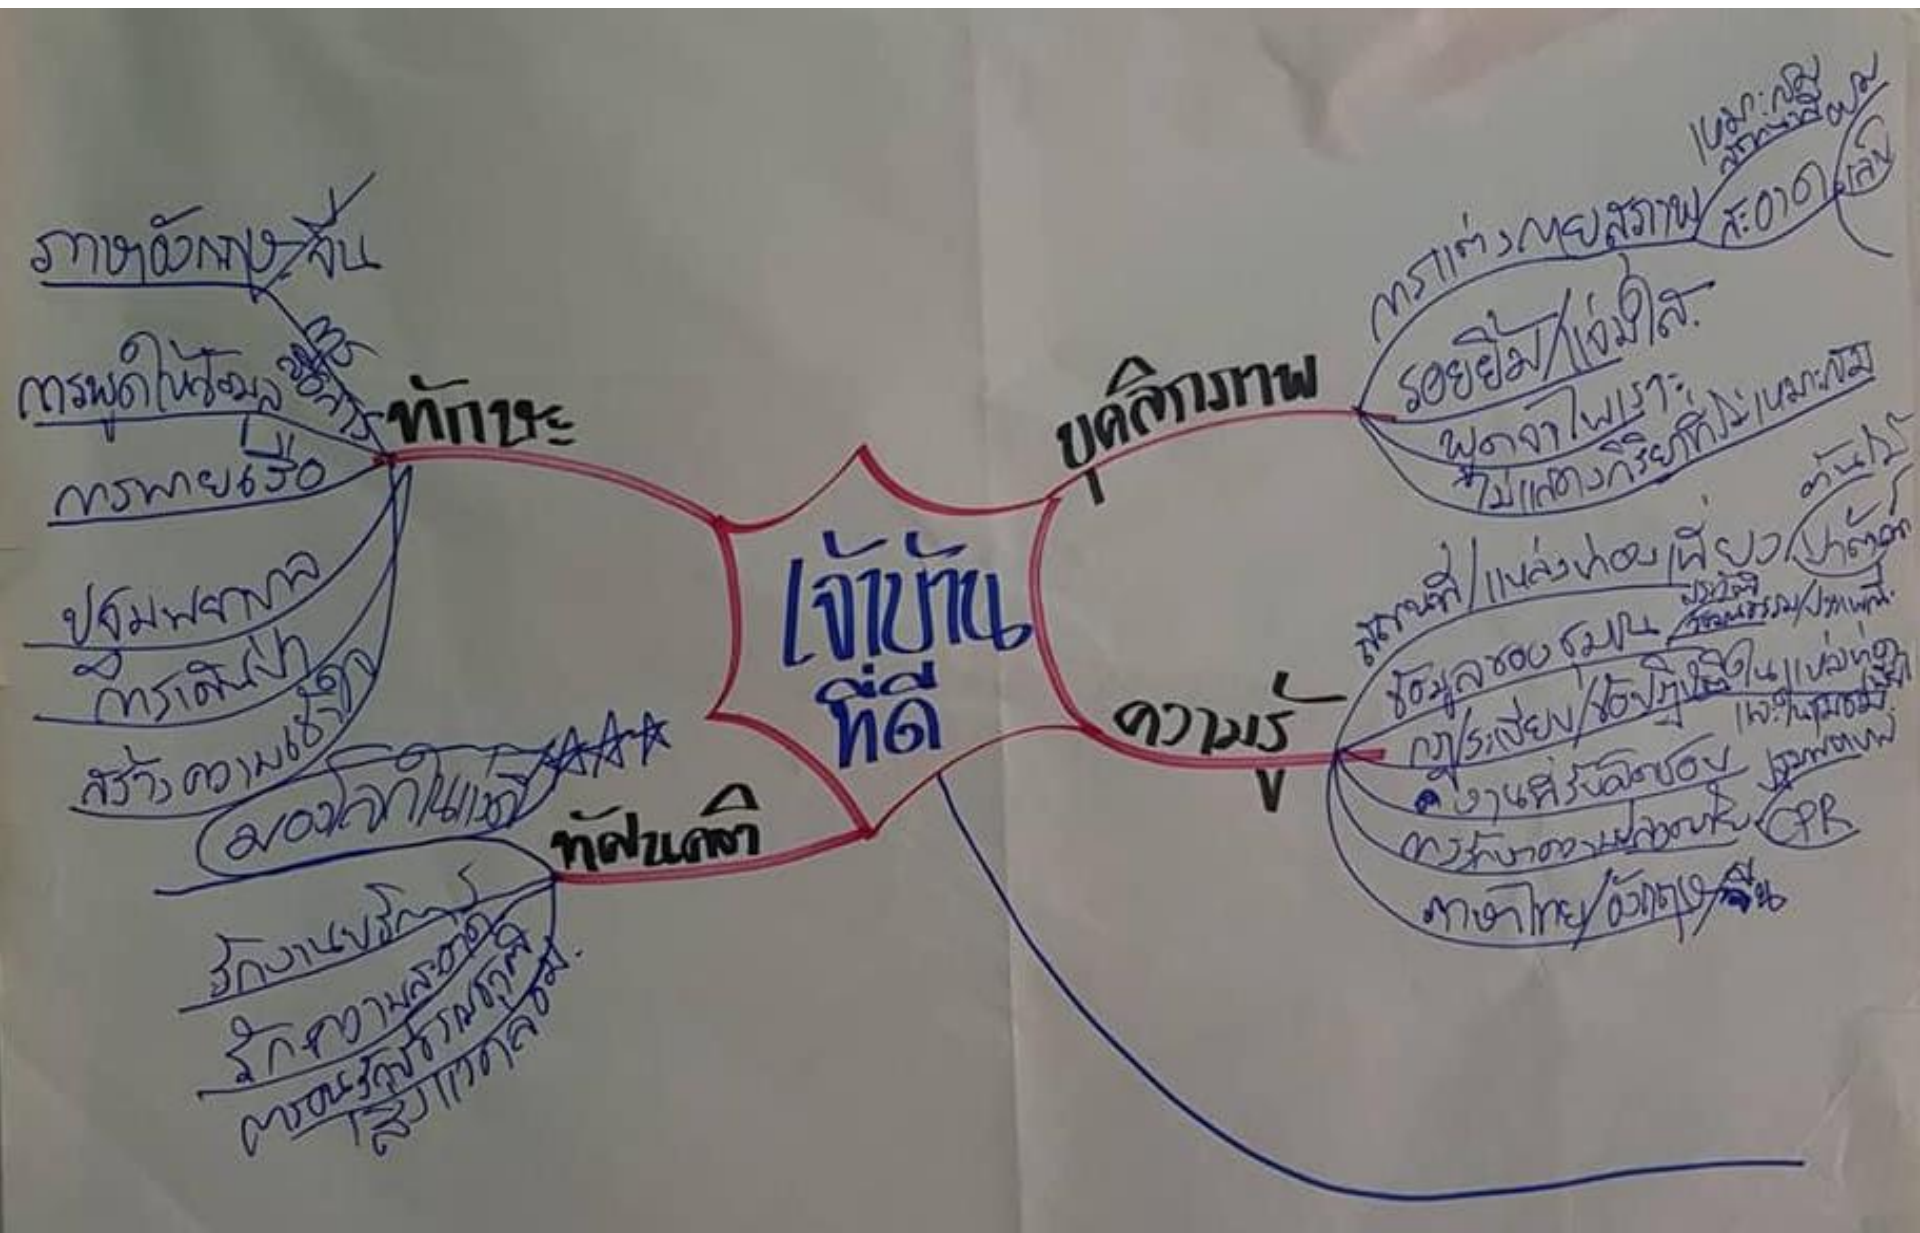 เจ้าบ้าน
ที่ดี
ทักษะ
ภาษาอังกฤษ/จีน
สื่อสาร
การพูดให้ข้อมูล
การพายเรือ
ปฐมพยาบาล
การเดินป่า
สร้างความเข้าใจ
ทัศนคติ
มองโลกในแง่ดี
รักงานบริการ
รักความสะอาด
การอนุรักษ์ธรรมชาติ
สิ่งแวดล้อม
บุคลิกภาพ
การแต่งกายสุภาพ
เหมาะสม
สะอาด
เล็บ
ผม
รอยยิ้ม/แจ่มใส
พูดจาไพเราะ
ไม่แสดงกิริยาที่ไม่เหมาะสม
ความรู้
สถานที่/แหล่งท่องเที่ยว
ต้นไม้
ข้อมูลของชุมชน
ประวัติ
วัฒนธรรม/ประเพณี
กฎ/ระเบียบ/ข้อปฏิบัติใน
งานที่รับผิดชอบ
การรักษาความปลอดภัย
CPR
ภาษาไทย/อังกฤษ/จีน